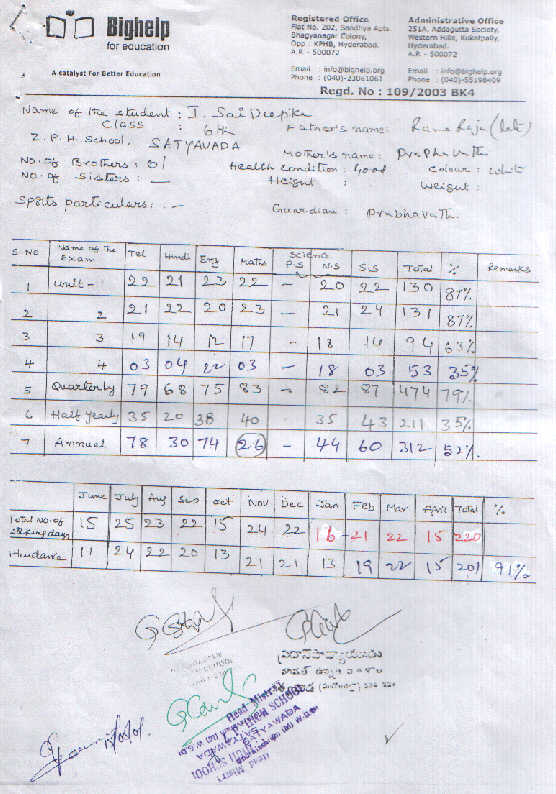 Bighelp
for education
A catalyst For Better Education
Registered Office
Flat No. 202, Sandhya Apts.
Bhagyanagar Colony,
Opp : KPHB, Hyderabad.
A.P. - 500072
Email : info@bighelp.org
Phone : (040)-23061063
Administrative Office
251A, Addagutta Society,
Western Hills, Kukatpally,
Hyderabad.
A.P. - 500072
Email : info@bighelp.org
Phone : (040)-55198409
Regd. No : 109/2003 BK4
Name of the student : J. Sai Deepika
Class : 6th Father's name: Rama Raja (late)
Z. P. H. School, SATYAVADA Mother's name: Prabhavathi
No. of Brothers: 01 Health condition: Good Colour: White
No. of Sisters: — Height : Weight :
Sports particulars: - Guardian : Prabhavathi
S.NO Name of the Exam Tel Hindi Eng Maths Science P.S N.S S.S Total % Remarks
1 Unit - 22 21 23 22 - 20 22 130 87%
2 2 21 22 20 23 - 21 24 131 87%
3 3 19 14 12 17 - 18 14 94 63%
4 4 03 04 22 03 - 18 03 53 35%
5 Quarterly 79 68 75 83 - 82 87 474 79%
6 Half Yearly 35 20 38 40 - 35 43 211 35%
7 Annual 78 30 74 26 - 44 60 312 52%
June July Aug Sep Oct Nov Dec Jan Feb Mar April Total %
Total No. of working days 15 25 23 22 15 24 22 16 21 22 15 220
11 24 22 20 13 21 21 13 19 22 15 201 91%
HIGH SCHOOL
SATYAVADA